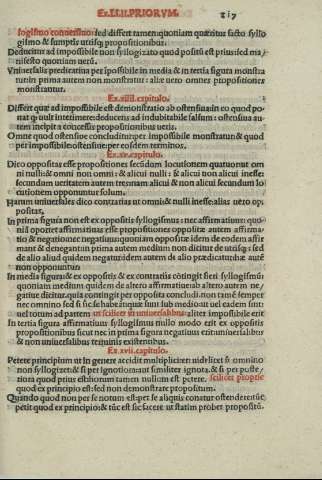 Ex. II. II. PRIORVM.
sogismo conuersino: sed differt tamen quoniam quæritur facto syllo
gismo & sumptis utrisq; propositionibus.
Deducitur ad impossibile non syllogizato quod positū est prius: sed ma/
nifesto quoniam uerū.
Vniuersalis prædicatiua per ipossibile in media & in tertia figura monstra
tur: in prima autem non monstratur: aliæ uero omnes propositiones
monstrantur.
Ex. xiiii. capitulo.
Differt quæ ad impossibile est demonstratio ab ostensiua: in eo quod po/
nat quod uult interimere: deducens ad indubitabile falsum: ostensiua au
tem incipit a confessis propositionibus ueris.
Omne quod ostensiue concluditur: per impossibile monstratur: & quod
per impossibile: ostensiue: per eosdem terminos.
Ex. xv. capitulo.
Dico oppositas esse propositiones secūdum locutionem quatuor: ut om
ni nulli: & omni non omni: & alicui nulli: & alicui non alicui inesse:
secundum ueritatem autem tres: nam alicui & non alicui secundum lo
cutionem opponuntur solum.
Harum uniuersales dico contrarias ut omni: & nulli inesse: alias uero op
positas.
In prima figura non est ex oppositis syllogismus: nec affirmatiuus: quo
niā oportet affirmatiuas esse propositiones: oppositæ autem affirma/
tio & negatio: nec negatiuus: quoniam oppositæ idem de eodem affir
mant & denegant: in prima autem medium non dicitur de utrisq; sed
de alio aliud quidem negatur: idem autem de alio prædicatur: hæ autē
non opponuntur.
In media figura: & ex oppositis & ex contrariis cōtingit fieri syllogismū:
quoniam medium quidem de altero affirmatiue: ab altero autem ne/
gatiue dicitur. quia contingit per opposita concludi. non tamē semper
nec omnino sed si sic se habeāt quæ sunt sub medio: ut uel eadem sint:
uel totum ad partem ut scilicet in uniuersalibus: aliter impossibile erit
In tertia figura affirmatiuus syllogismus nullo modo erit ex oppositis
propositionibus sicut nec in prima figura: negatiuus erit: uniuersalibus
& non uniuersalibus terminis existentibus.
Ex. xvii. capitulo.
Petere principium ut in genere accidit multipliciter: uidelicet si omnino
non syllogizet: & si per ignotiora: aut similiter ignota: & si per poste/
riora quod prius est: horum tamen nullum est petere. scilicet proprie
quod ex principio est: sed non demonstrare propositum.
Quando quod non per se notum est: per se aliquis conatur ostendere: tūc
petit quod ex principio: & tūc est sic facere ut statim probet propositū.